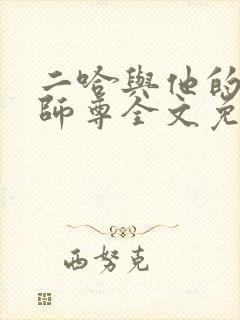 二哈與他的
師尊全文免
西努克